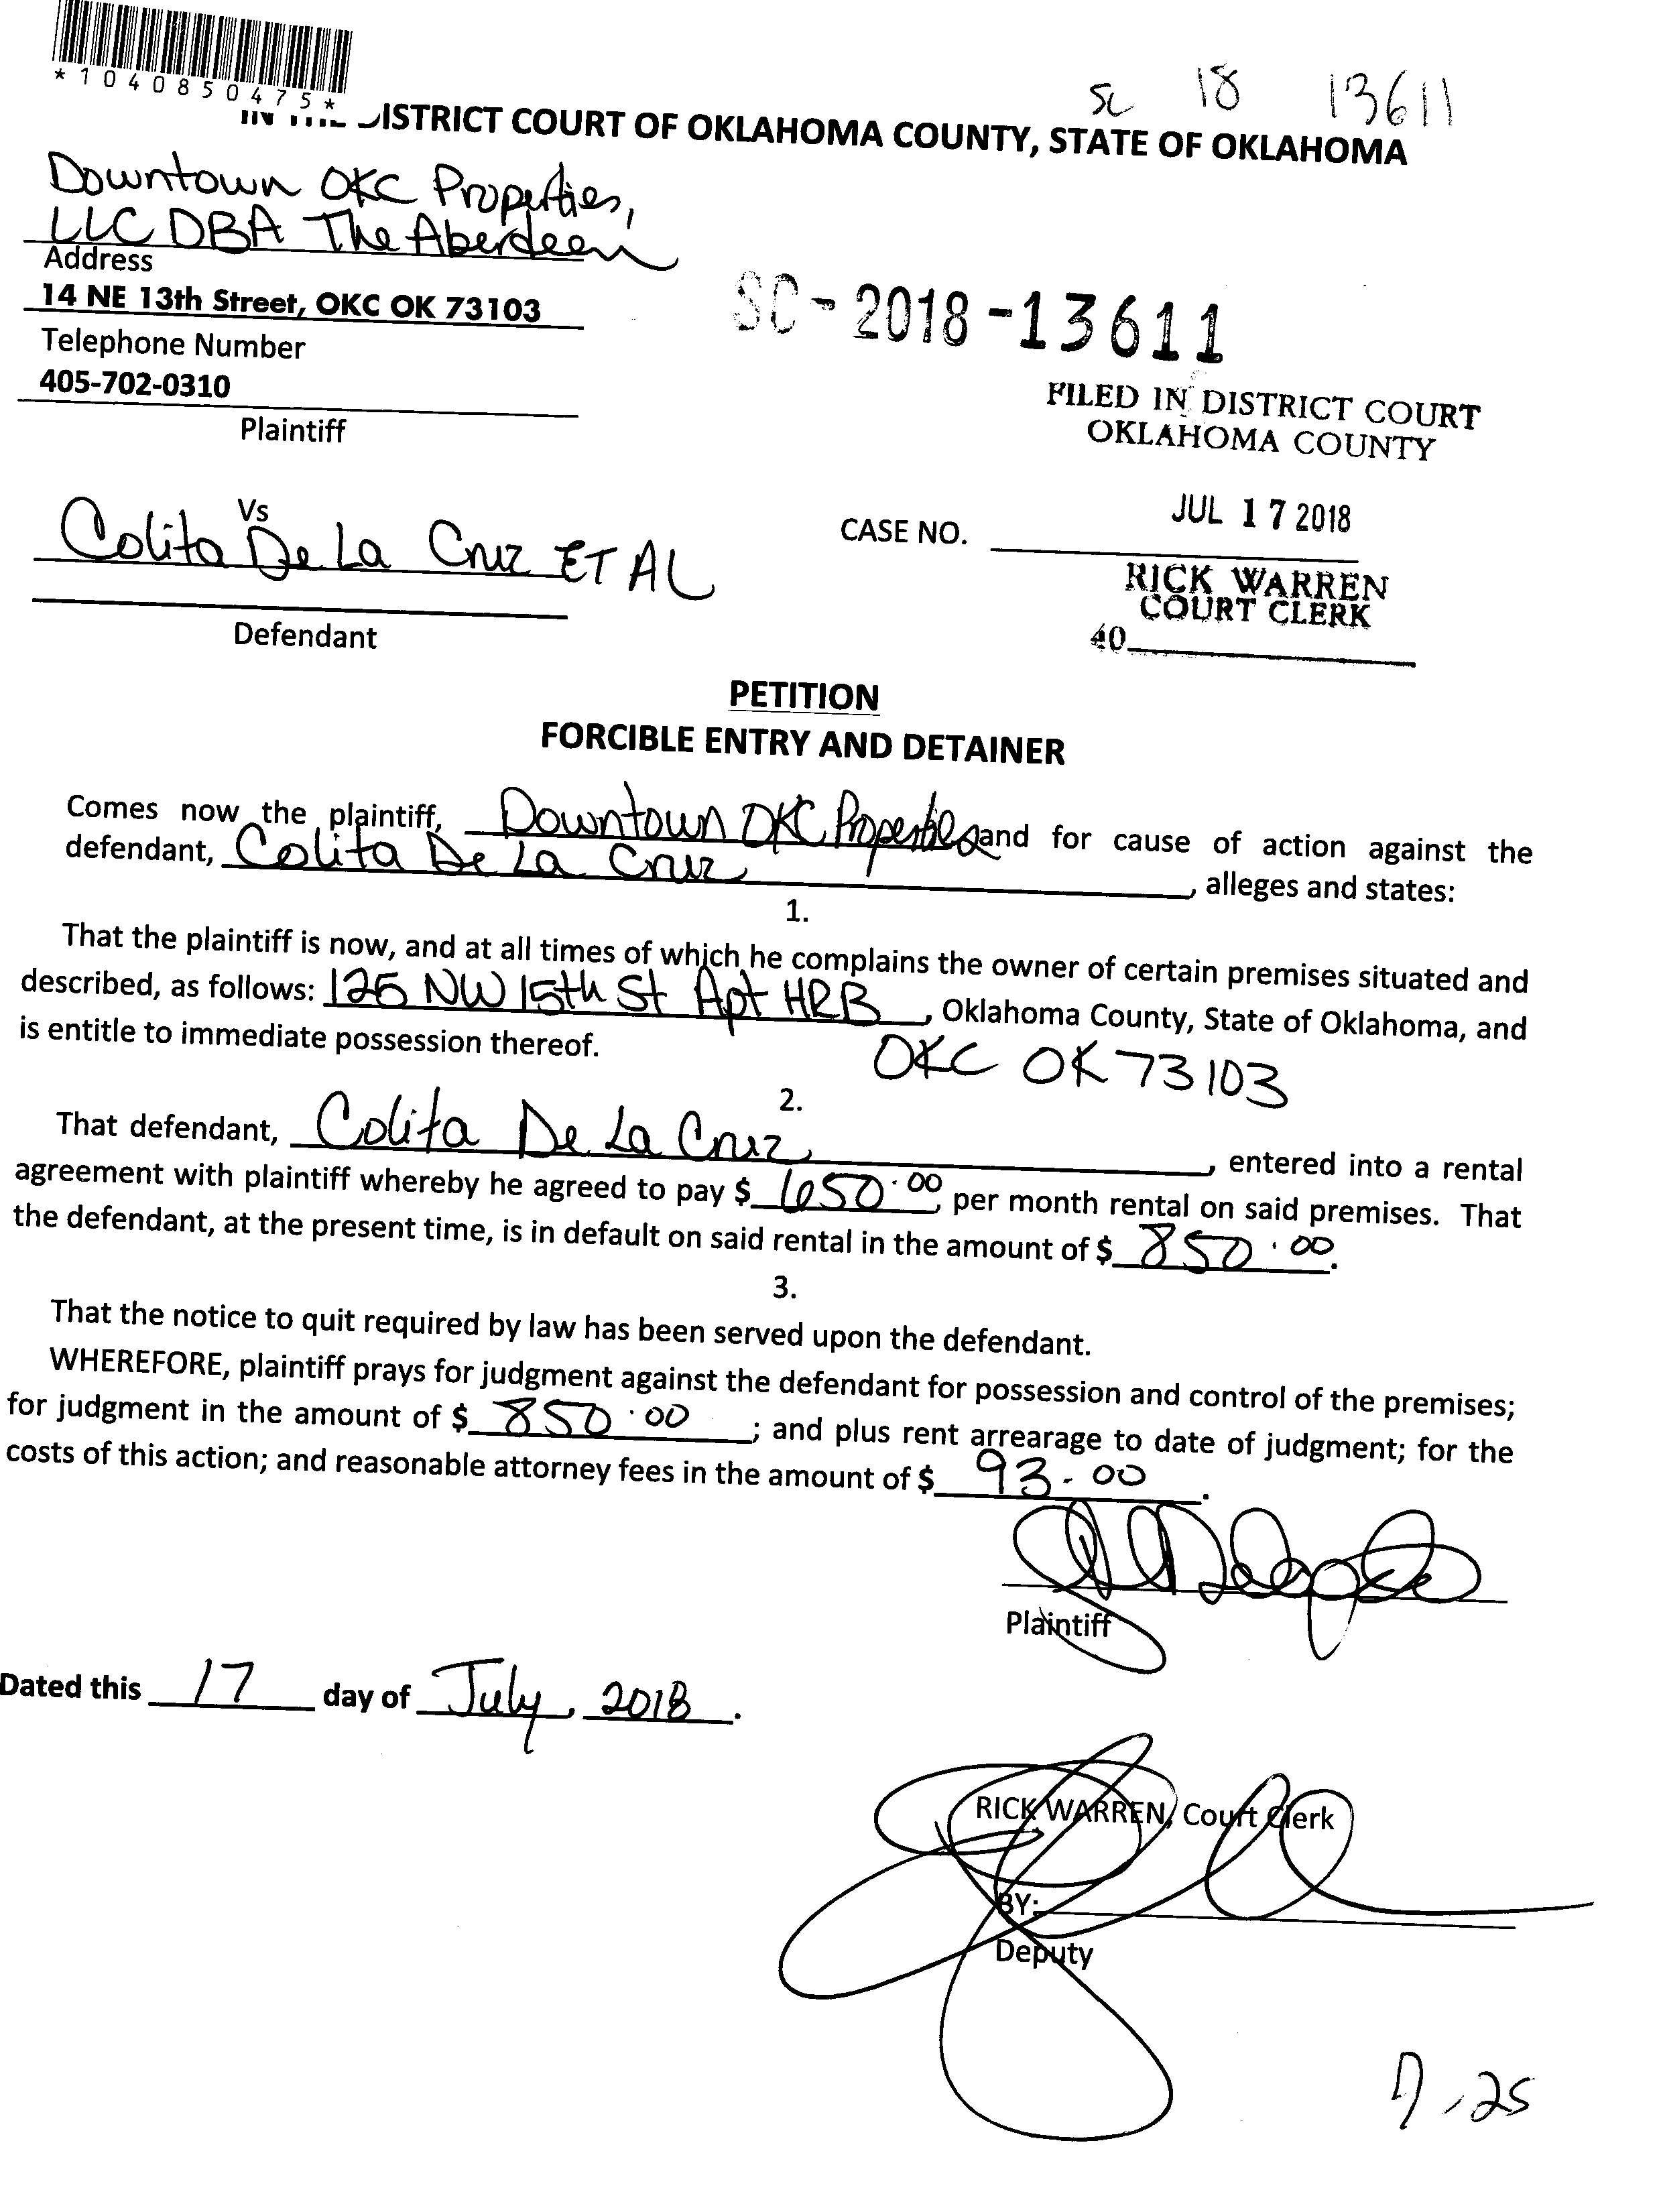 *1040850475*
SC 18 13611
IN THE DISTRICT COURT OF OKLAHOMA COUNTY, STATE OF OKLAHOMA
Downtown OKC Properties,
LLC DBA The Aberdeen
Address
14 NE 13th Street, OKC OK 73103
SC-2018-13611
Telephone Number
405-702-0310
Plaintiff
FILED IN DISTRICT COURT
OKLAHOMA COUNTY
JUL 17 2018
Vs
Colita De La Cruz ET AL
CASE NO.
RICK WARREN
COURT CLERK
40
Defendant
PETITION
FORCIBLE ENTRY AND DETAINER
Comes now the plaintiff, Downtown OKC Properties and for cause of action against the
defendant, Colita De La Cruz, alleges and states:
1.
That the plaintiff is now, and at all times of which he complains the owner of certain premises situated and
described, as follows: 125 NW 15th St Apt HRB, Oklahoma County, State of Oklahoma, and
is entitle to immediate possession thereof. OKC OK 73103
2.
That defendant, Colita De La Cruz, entered into a rental
agreement with plaintiff whereby he agreed to pay $ 650.00, per month rental on said premises. That
the defendant, at the present time, is in default on said rental in the amount of $ 850.00.
3.
That the notice to quit required by law has been served upon the defendant.
WHEREFORE, plaintiff prays for judgment against the defendant for possession and control of the premises;
for judgment in the amount of $ 850.00; and plus rent arrearage to date of judgment; for the
costs of this action; and reasonable attorney fees in the amount of $ 93.00.
Plaintiff
Dated this 17 day of July, 2018.
RICK WARREN, Court Clerk
BY:
Deputy
7.25